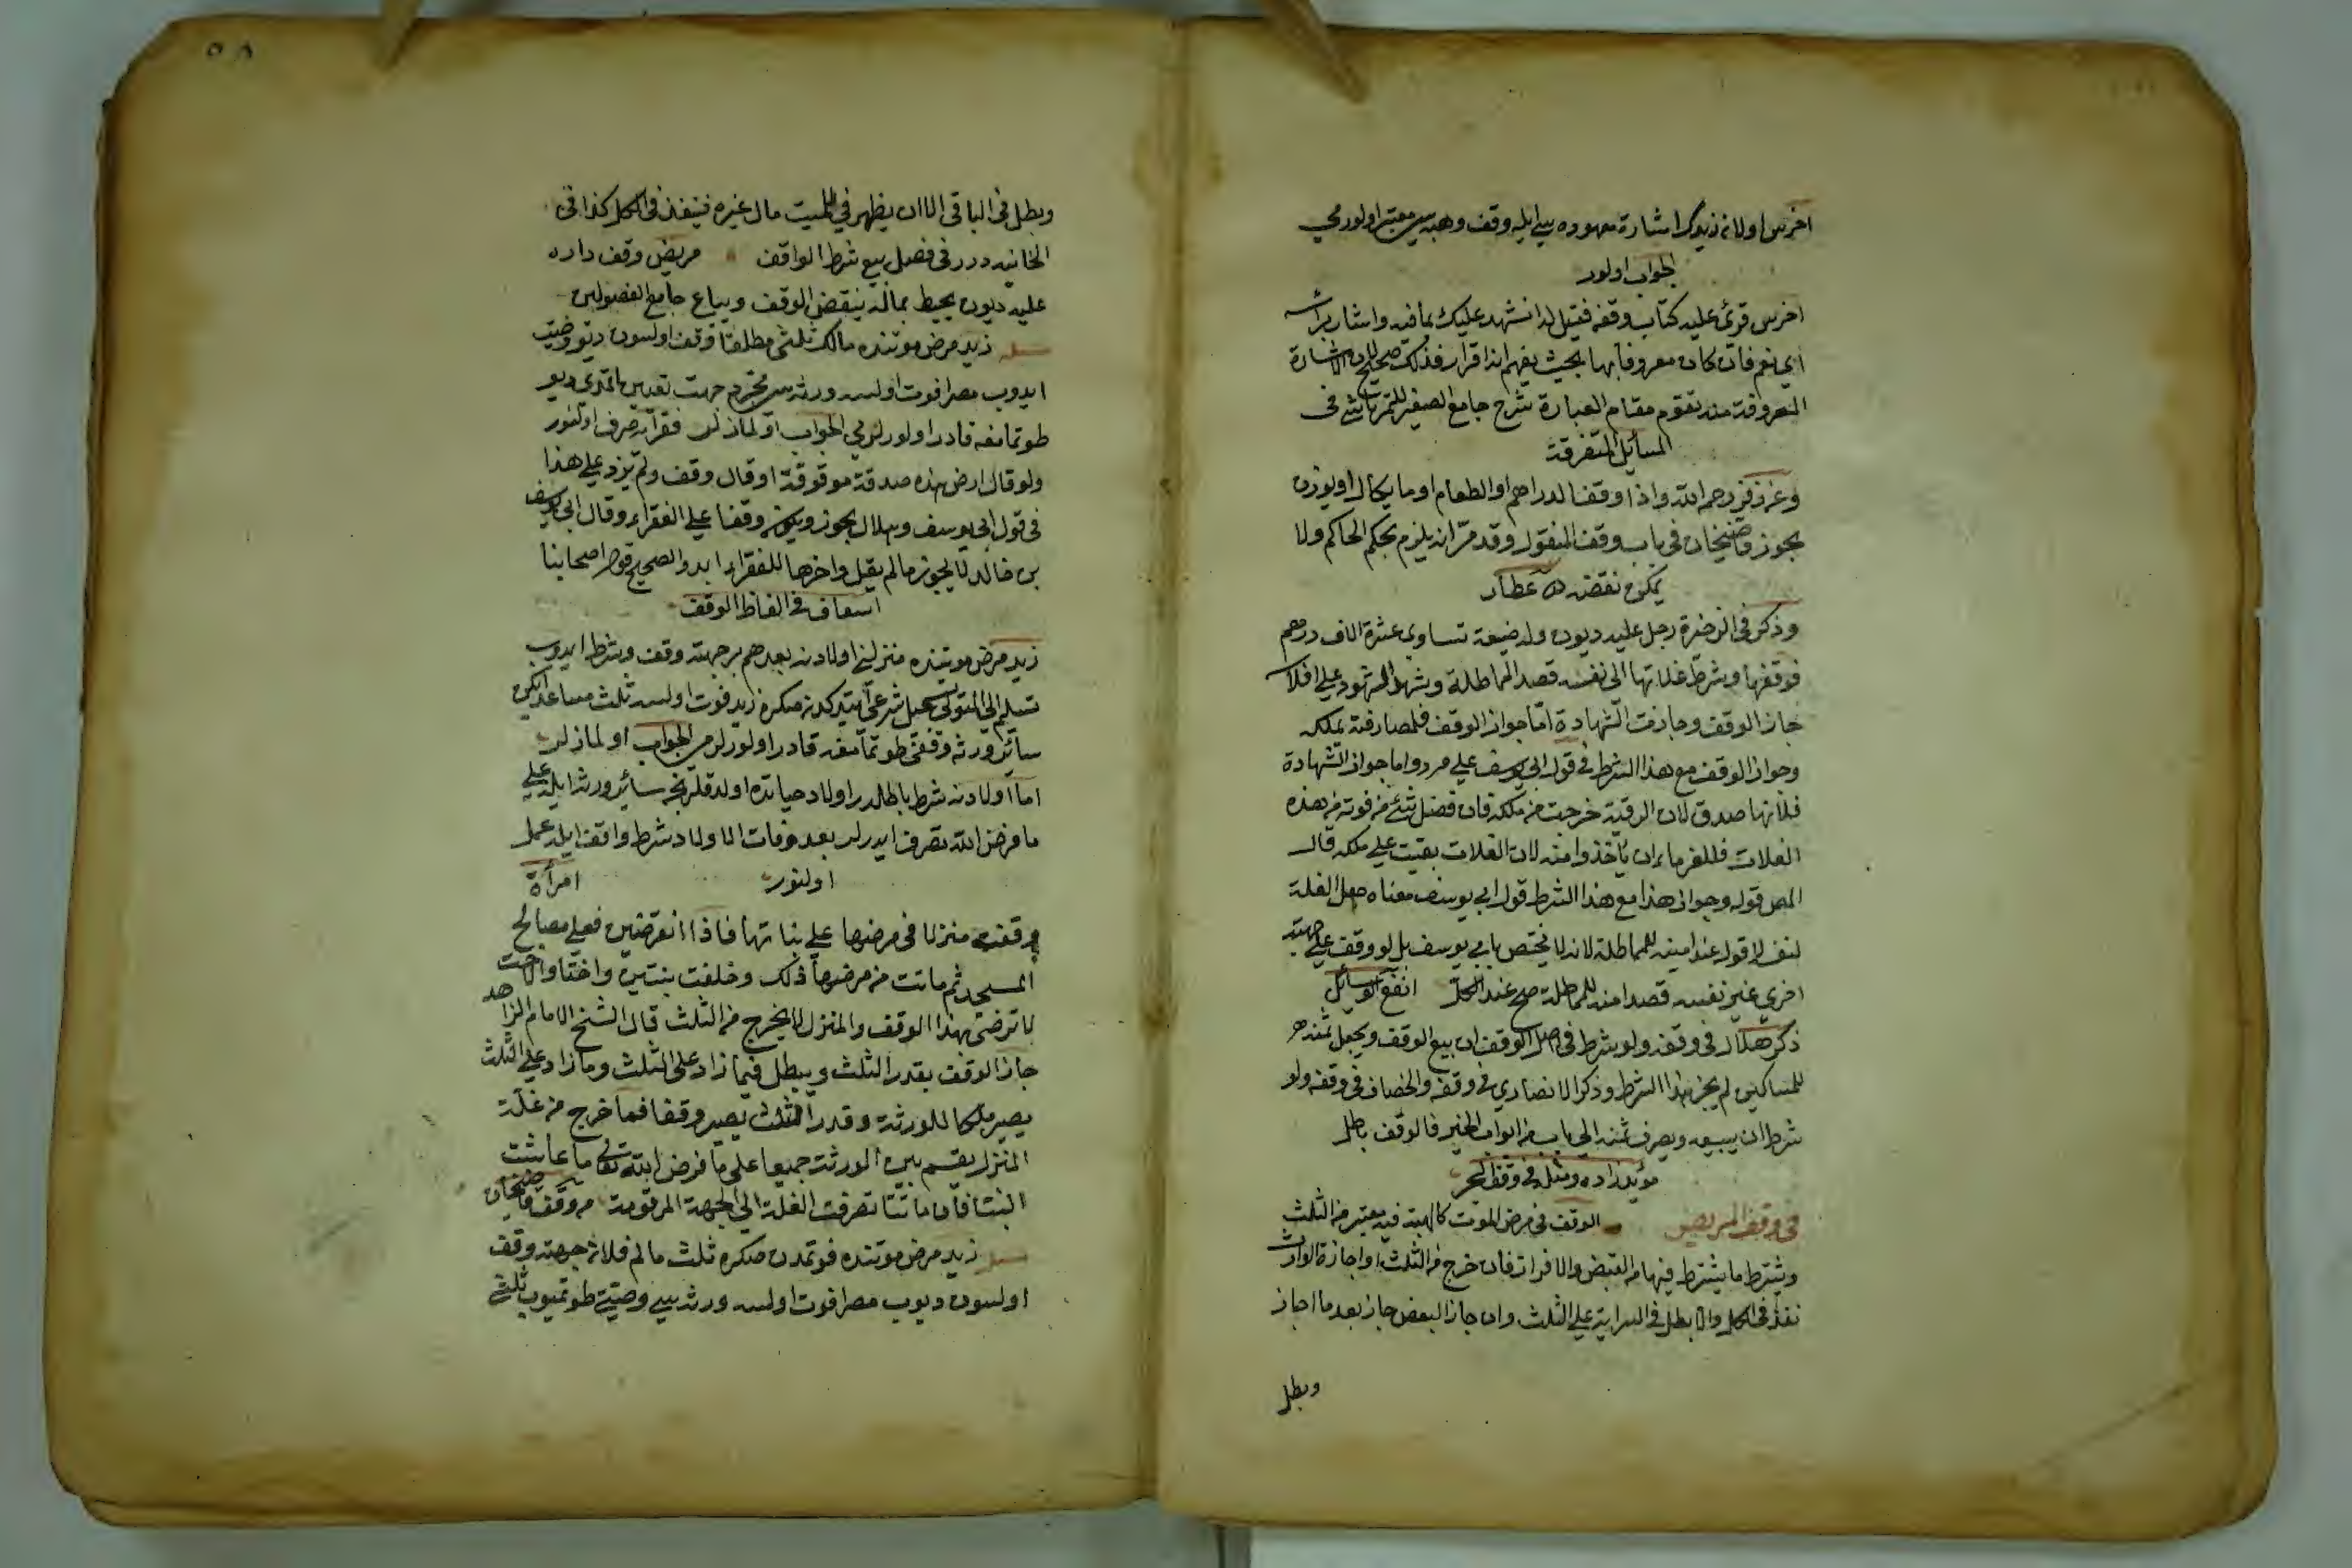 اخرس اولان زيدك اشارة معهوده سي ايله وقف وهبه سي معتبر اولورمي
الجواب اولور
اخرس قرئ عليه كتاب وقفه فقيل له انشهد عليك بما فيه واشار برأسه
اي نعم فان كان معروفا بها بحيث يفهم انه اقرار فذلك صحيح لان الاشارة
المعروفة منه تقوم مقام العبارة شرح جامع الصغير للتمرتاشي في
المسائل المتفرقة
وعن زفر رحمه الله واذا وقف الدراهم او الطعام او ما يكال او يوزن
يجوز قاضيخان في باب وقف المنقول وقد مر انه يلزم بحكم الحاكم ولا
يمكن نقضه عطار
وذكر في الذخيرة رجل عليه ديون وله ضيعة تساوي عشرة الاف درهم
فوقفها وشرط غلاتها الى نفسه قصد المماطلة وشهد الشهود على افلاسه
جاز الوقف وجازت الشهادة اما جواز الوقف فلمصادفته بملكه
وجواز الوقف مع هذا الشرط في قول ابي يوسف على مرد واما جواز الشهادة
فلانها صدق لان الرقبة خرجت من ملكه فان فضل شئ من قوته من هذه
الغلات فللغرماء ان ياخذوا منه لان الغلات بقيت على ملكه قال
المص قوله وجواز هذا مع هذا الشرط قول ابي يوسف معناه جعل الغلة
لنفسه لا قوله عندا منه للمماطلة لانه لا يختص بابي يوسف بل لو وقف على جهته
اخرى غير نفسه قصدا منه للمماطلة صح عند الكل انفع الوسائل
ذكر هلال في وقفه ولو شرط في اصل الوقف ان بيع الوقف ويجعل ثمنه
للمساكين لم يجز هذا الشرط وذكر الانصاري في وقفه والخصاف في وقفه ولو
شرط ان يبيعه ويصرف ثمنه الى باب من ابواب الخير فالوقف باطل
مؤيد زاده ومثله في وقف البحر
في وقف المريض الوقف في مرض الموت كالهبة فيه معتبر من الثلث
ويشترط ما يشترط فيها من القبض والافراز فان خرج من الثلث او اجازة الوارث
نفذ في الكل والا بطل في الزاية على الثلث وان جاز البعض جاز بعد ما اجاز
وبطل
٥٨
وبطل في الباقي الا ان يظهر في للميت مال غيره فينفذ في الكل كذا في
الخانيه درر في فصل بيع شرط الواقف مريض وقف داره
عليه ديون يحيط بماله ينقض الوقف ويباع جامع الفصولين
مسئله زيد مرض موتنده مالك ثلثي مطلقا وقف اولسون ديو وصيت
ايدوب مصرا فوت اولسه ورثه سي مجرد جهت تعيين اتمدي ديو
طوتمامغه قادر اولورلر مي الجواب اولمازلر فقرايه صرف اولنور
ولو قال ارضي هذه صدقة موقوفة او قال وقف ولم يزد على هذا
في قول ابي يوسف وهلال يجوز ويكون وقفا على الفقراء وقال ابي يوسف
بن خالد لا يجوز ما لم يقل واخرها للفقراء ابدا والصحيح قول اصحابنا
اسعاف في الفاظ الوقف
زيد مرض موتنده منزلني اولادنه بعدهم بر جهته وقف وشرط ايدوب
تسليم الى المتولي تسجيل شرعي ايتدكدنصكره زيد فوت اولسه ثلث مساعد ايكن
سائر ورثه وقفي طوتمامغه قادر اولورلر مي الجواب اولمازلر
اما اولادنه شرط باطلدر اولاد حياتده اولدقلرنجه سائر ورثه ايله على
ما فرض الله تصرف ايدرلر بعد وفات الاولاد شرط واقف ايله عمل
اولنور امرأة
وقفت منزلا في مرضها على بناتها فاذا انقرضن فعلى مصالح
المسجد ثم ماتت من مرضها ذلك وخلفت بنتين واختا والاخت
لا ترضى بهذا الوقف والمنزل لا يخرج من الثلث قال الشيخ الامام الزاهد
جاز الوقف بقدر الثلث ويبطل فيما زاد على الثلث وما زاد على الثلث
يصير ملكا للورثة وقدر الثلث يصير وقفا فما خرج من غلة
المنزل يقسم بين الورثة جميعا على ما فرض الله تعالى ما عاشت
البنتا فان ماتتا تصرفت الغلة الى الجهة المرقومة من وقف قاضيخان
مسئله زيد مرض موتنده فوتمدن صكره ثلث مالم فلان جهته وقف
اولسون ديوب مصرا فوت اولسه ورثه سي وصيتي طوتميوب ثلثي